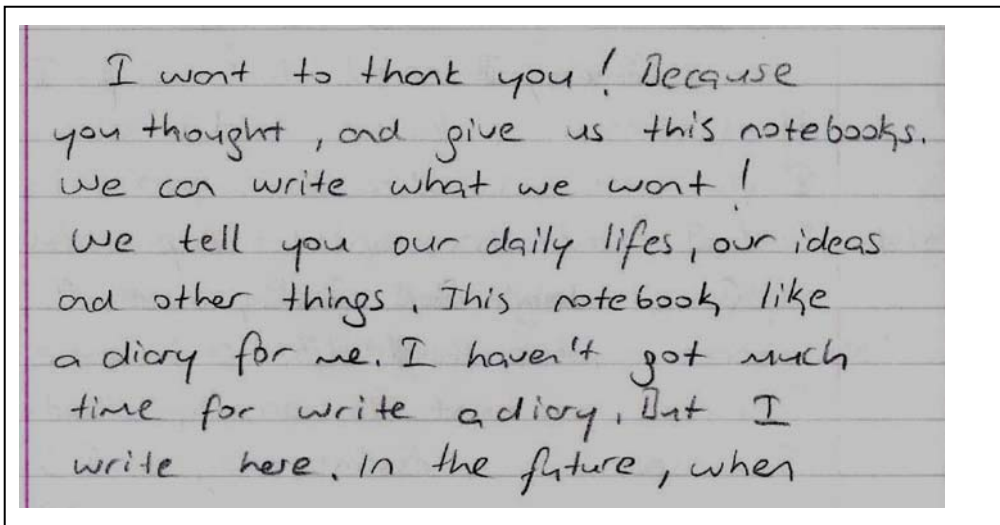 I want to thank you! Because
you thought, and give us this notebooks.
We can write what we want!
We tell you our daily lifes, our ideas
and other things. This notebook like
a diary for me. I haven't got much
time for write a diary. But I
write here. In the future, when